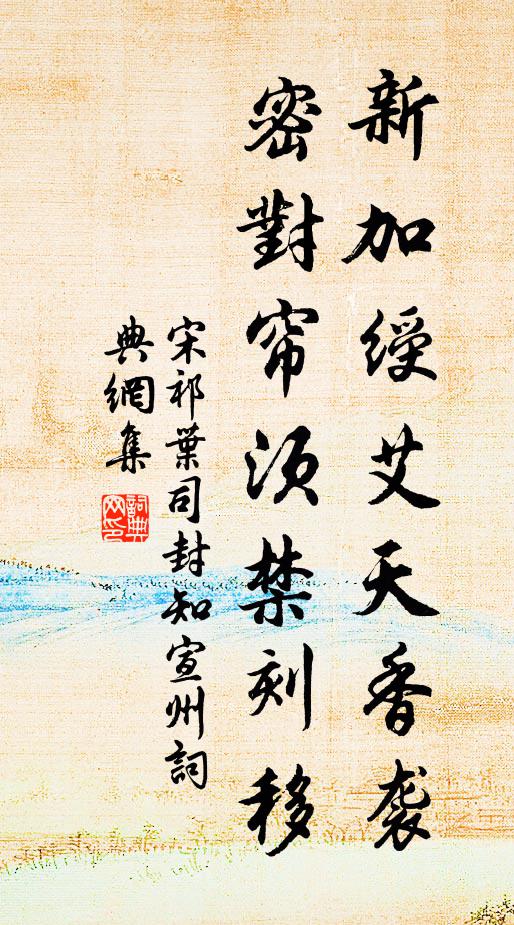 新加绶艾天香袭
密對帘须禁刻移
宋祁葉司封知宣州詞
典網集
詞典網印